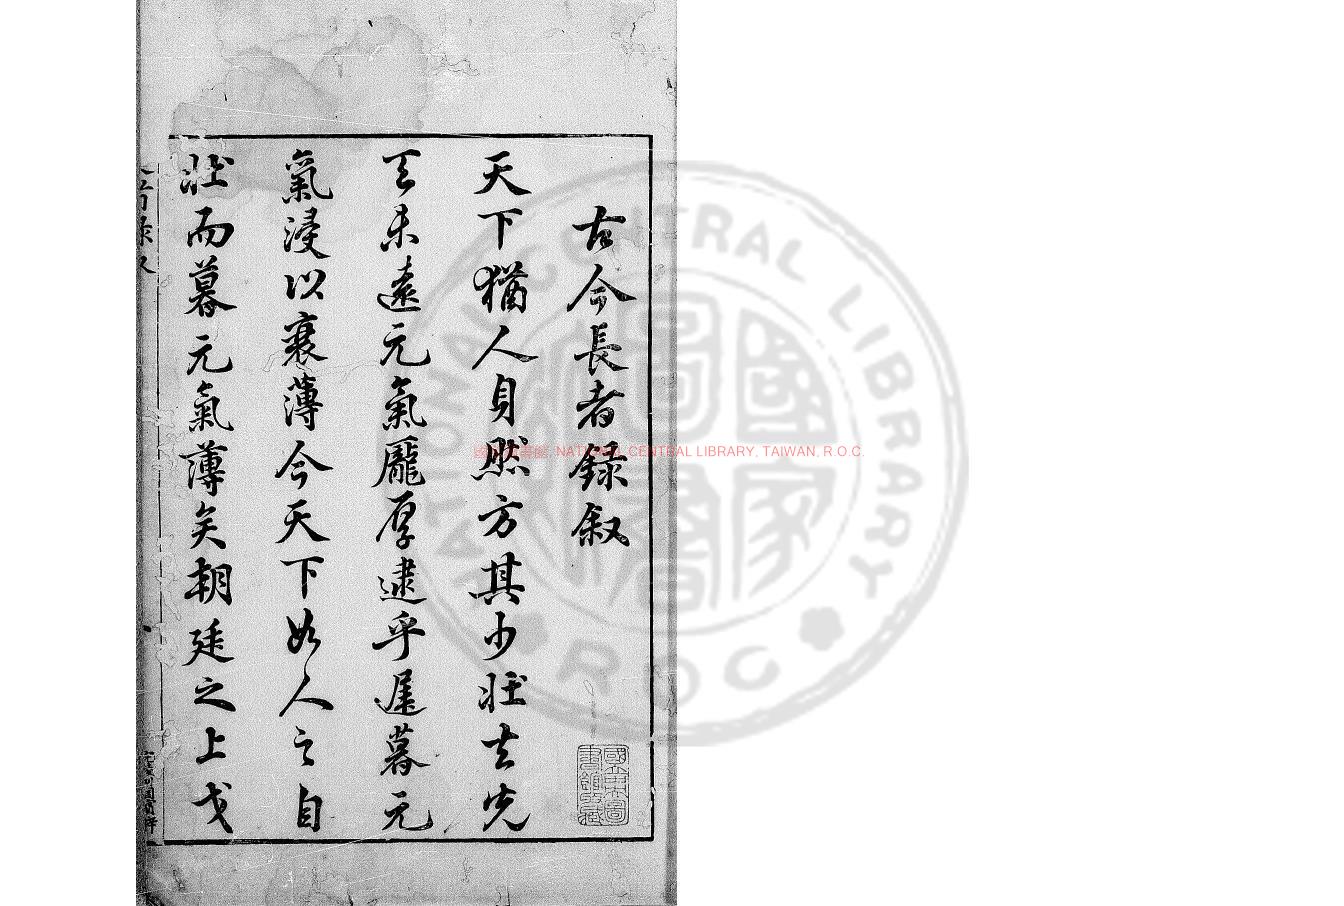 古今長者録叙
天下猶人身然方其少壯去先
天未遠元氣龐厚逮乎遲暮元
氣浸以衰薄今天下如人之自
壯而暮元氣薄矣朝廷之上戈
國立中央圖
書館藏
NATIONAL CENTRAL LIBRARY
ROC
國家圖書
國家圖書館 NATIONAL CENTRAL LIBRARY, TAIWAN, R.O.C.